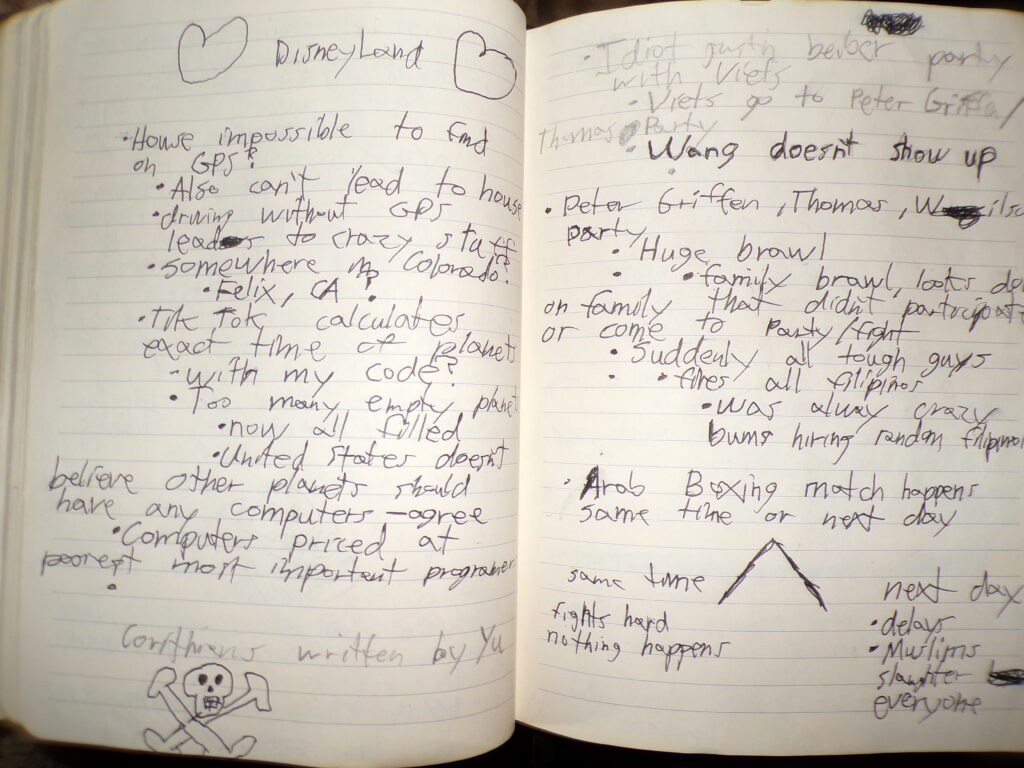 DisneyLand
• House impossible to find
on GPS?
• Also can't lead to house
• driving without GPS
leads to crazy stuff
• Somewhere in Colorado?
• Felix, CA ?
• Tik Tok calculates
exact time of planets
- with my code?
• Too many empty planet
• now all filled
• United States doesn't
believe other planets should
have any computers - agree
• Computers priced at
poorest most important programer
•
Corithians written by Yu
• Idiot justin beiber party
with Viets
• Viets go to Peter Griffen/
Thomas Party
• Wang doesn't show up
• Peter Griffen, Thomas, W ilso
party
• Huge brawl
• • family brawl, looks do
on family that didn't participat
or come to party/fight
• Suddenly all tough guys
• • fires all filipinos
• was alway crazy
bums hiring random filipino
• Arab Boxing match happens
same time or next day
same time
fights hard
nothing happens
next day
• delays
• Muslims
slaughter
everyone